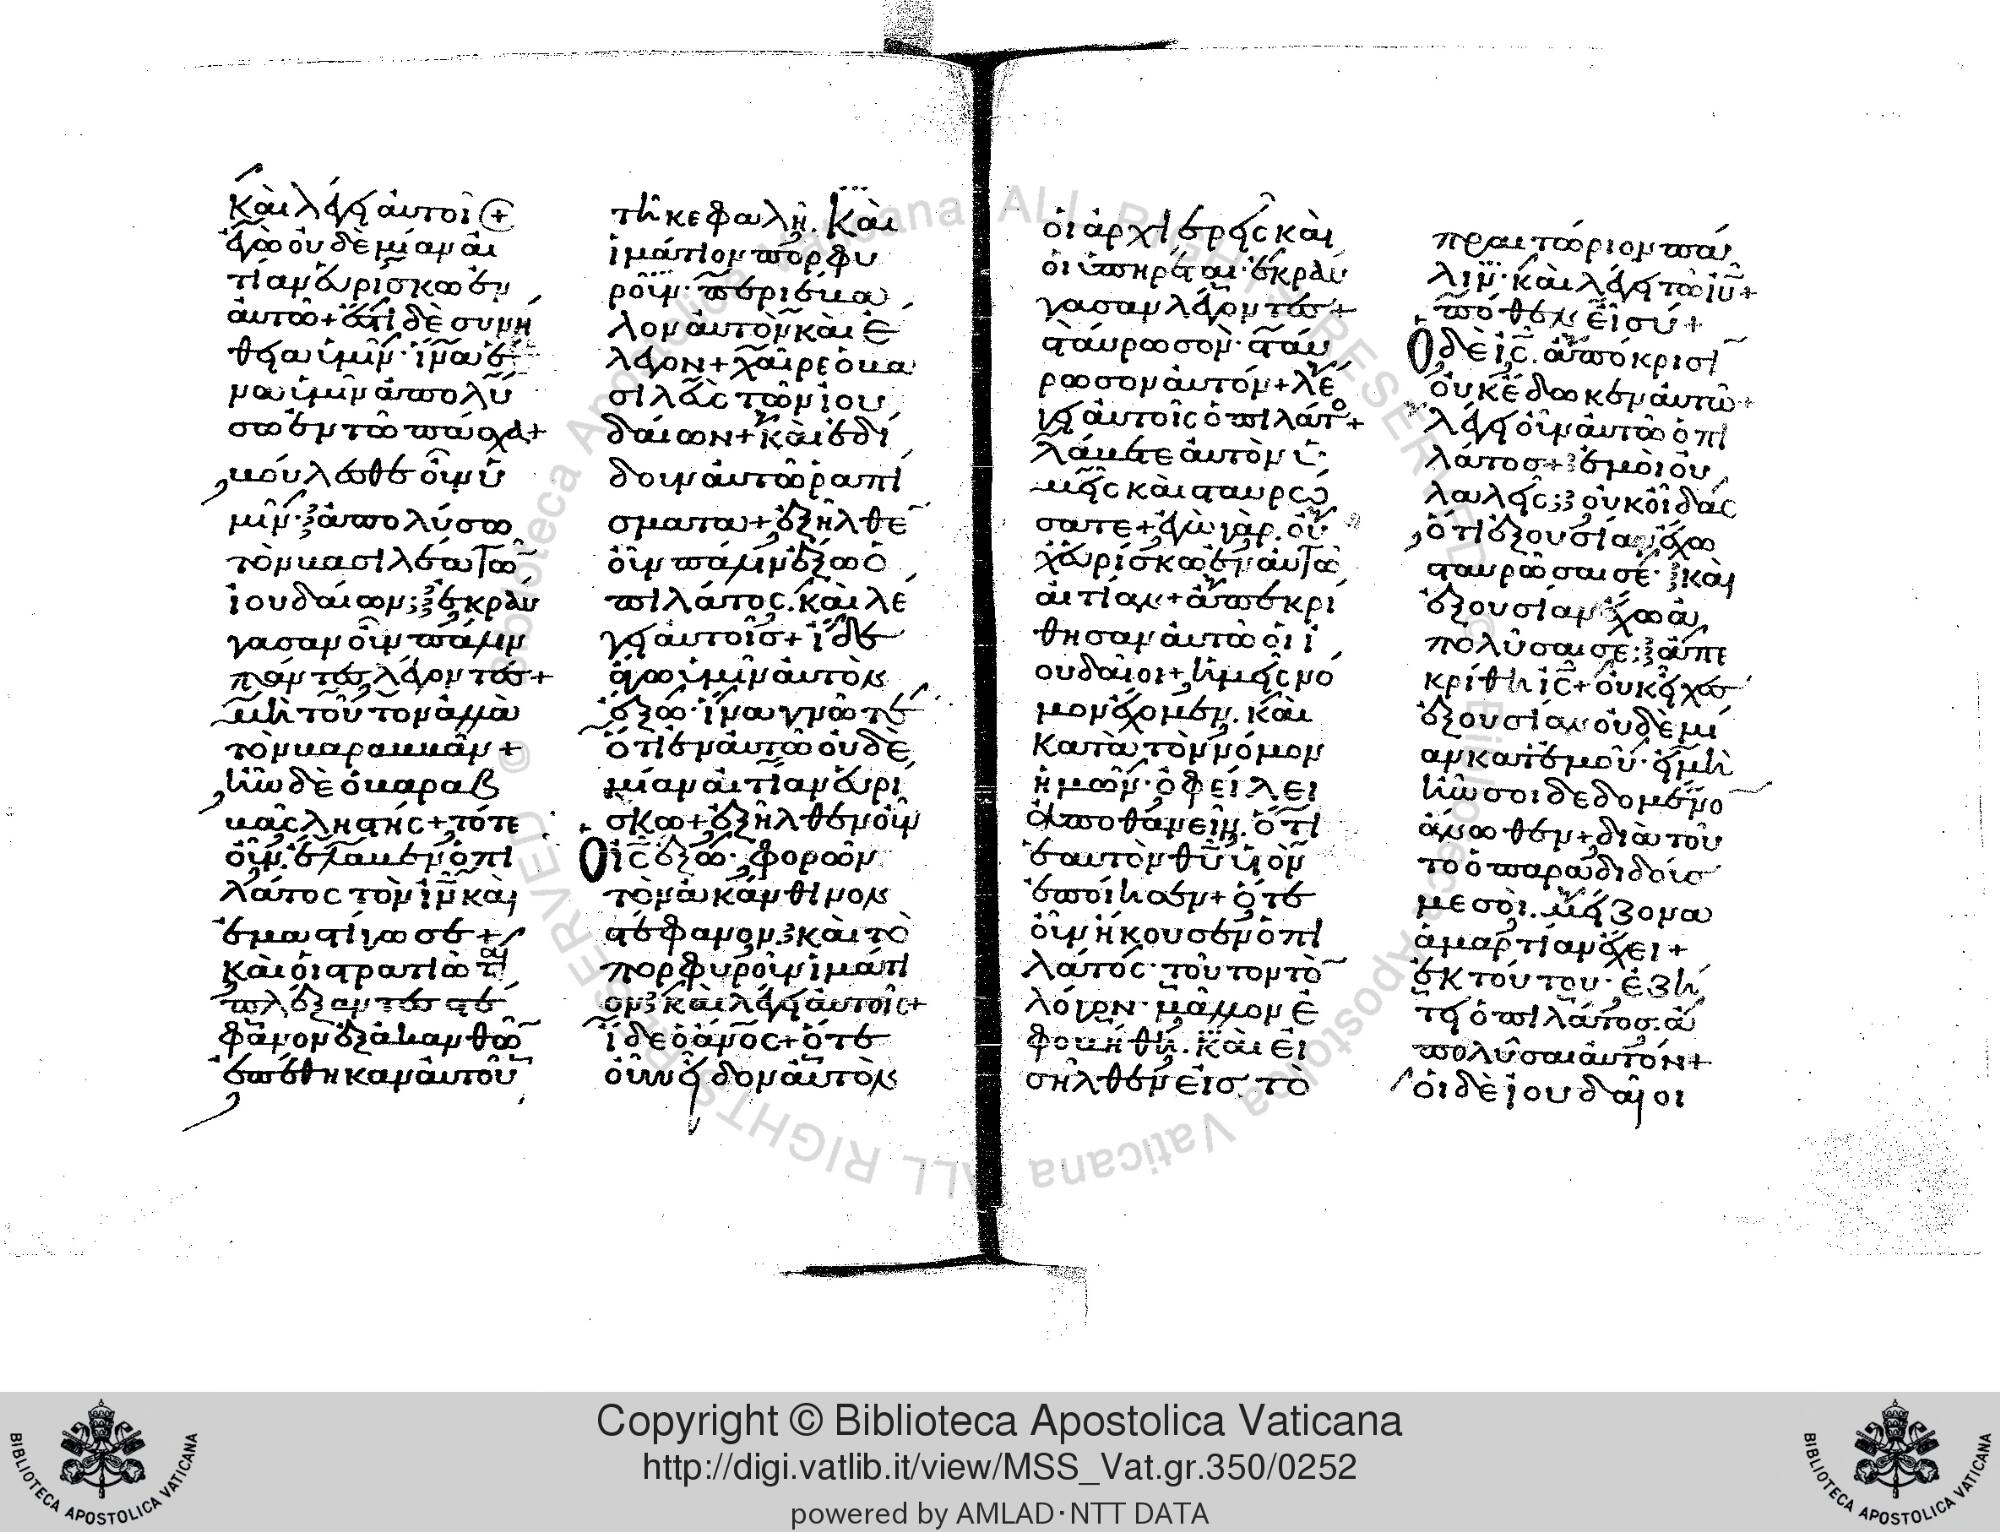 καὶ λέγει αὐτοῖ(ς) +
ἐγὼ οὐδεμίαν αἰ
τίαν εὑρίσκω ἐν
αὐτῶ + ἔστι δὲ συνή
θεια ὑμῖν · ἵνα ἕ
να ὑμῖν ἀπολύ
σω ἐν τῶ πάσχα +
βούλεσθε οὖν ὑ
μῖν · ἀπολύσω
τὸν βασιλέα τῶ
ἰουδαίων ; ἐκραύ
γασαν οὖν πάλιν
πάντες λέγοντες +
μὴ τοῦτον ἀλλὰ
τὸν βαραββᾶν +
ἦν δὲ ὁ βαραβ
βᾶς ληστής + τότε
οὖν ἔλαβεν ὁ πι
λάτος τὸν ἰν καὶ
ἐμαστίγωσε +
καὶ οἱ στρατιῶται
πλέξαντες στέ
φανον ἐξ ἀκανθῶ
ἐπέθηκαν αὐτοῦ
τῆ κεφαλῆ . καὶ
ἱμάτιον πορφυ
ροῦν · περιέβα
λον αὐτὸν καὶ ἔ
λεγον + χαῖρε ὁ βα
σιλεὺς τῶν ἰου
δαίων + καὶ ἐδί
δουν αὐτῶ ῥαπί
σματα + ἐξῆλθε
οὖν πάλιν ἔξω ὁ
πιλάτος . καὶ λέ
γει αὐτοῖς + ἴδε
ἄγω ὑμῖν αὐτὸν
ἔξω · ἵνα γνῶτε
ὅτι ἐν αὐτῶ οὐδε
μίαν αἰτίαν εὑρί
σκω + ἐξῆλθεν οὖν
Ο ἰς ἔξω · φορῶν
τὸν ἀκάνθινον
στέφανον καὶ τὸ
πορφυροῦν ἱμάτι
ον καὶ λέγει αὐτοῖς +
ἴδε ὁ ἄνος + ὅτε
οὖν εἶδον αὐτὸν
οἱ ἀρχιερεῖς καὶ
οἱ ὑπηρέται · ἐκραύ
γασαν λέγοντες +
σταύρωσον · σταύ
ρωσον αὐτόν + λέ
γει αὐτοῖς ὁ πιλάτο +
λάβετε αὐτὸν ὑ
μεῖς καὶ σταυρώ
σατε + ἐγὼ γὰρ . οὐ
χ εὑρίσκω ἐν αὐτῶ
αἰτίαν + ἀπεκρί
θησαν αὐτῶ οἱ ἰ
ουδαῖοι + ἡμεῖς νό
μον ἔχομεν . καὶ
κατὰ τὸν νόμον
ἡμῶν · ὀφείλει
ἀποθανεῖν . ὅτι
ἑαυτὸν θῦ υἱὸν
ἐποίησεν + ὅτε
οὖν ἤκουσεν ὁ πι
λάτος · τοῦτον τὸ
λόγον · μᾶλλον ἐ
φοβήθη . καὶ εἰ
σῆλθεν εἰς τὸ
πραιτώριον πά
λιν · καὶ λέγει τῶ ἰυ +
πόθεν εἶ σύ +
Ο δὲ ἰς . ἀπόκρισι
οὐκ ἔδωκεν αὐτῶ +
λέγει οὖν αὐτῶ ὁ πι
λάτος + ἐμοὶ οὐ
λαλεῖς ; οὐκ οἶδας
ὅτι ἐξουσίαν ἔχω
σταυρῶσαι σέ · καὶ
ἐξουσίαν ἔχω ἀ
πολῦσαι σε ; ἀπε
κρίθη ἰς + οὐκ εἶχες
ἐξουσίαν οὐδεμί
αν κατ' ἐμοῦ · εἰ μὴ
ἦν σοι δεδομένο
ἄνωθεν + διὰ τοῦ
το ὁ παραδιδούς
με σοὶ . μείζονα
ἁμαρτίαν ἔχει +
ἐκ τούτου · ἐζή
τει ὁ πιλάτος . ἀ
πολῦσαι αὐτόν +
οἱ δὲ ἰουδαῖοι
Copyright © Biblioteca Apostolica Vaticana
http://digi.vatlib.it/view/MSS_Vat.gr.350/0252
powered by AMLAD·NTT DATA
BIBLIOTECA APOSTOLICA VATICANA
BIBLIOTECA APOSTOLICA VATICANA